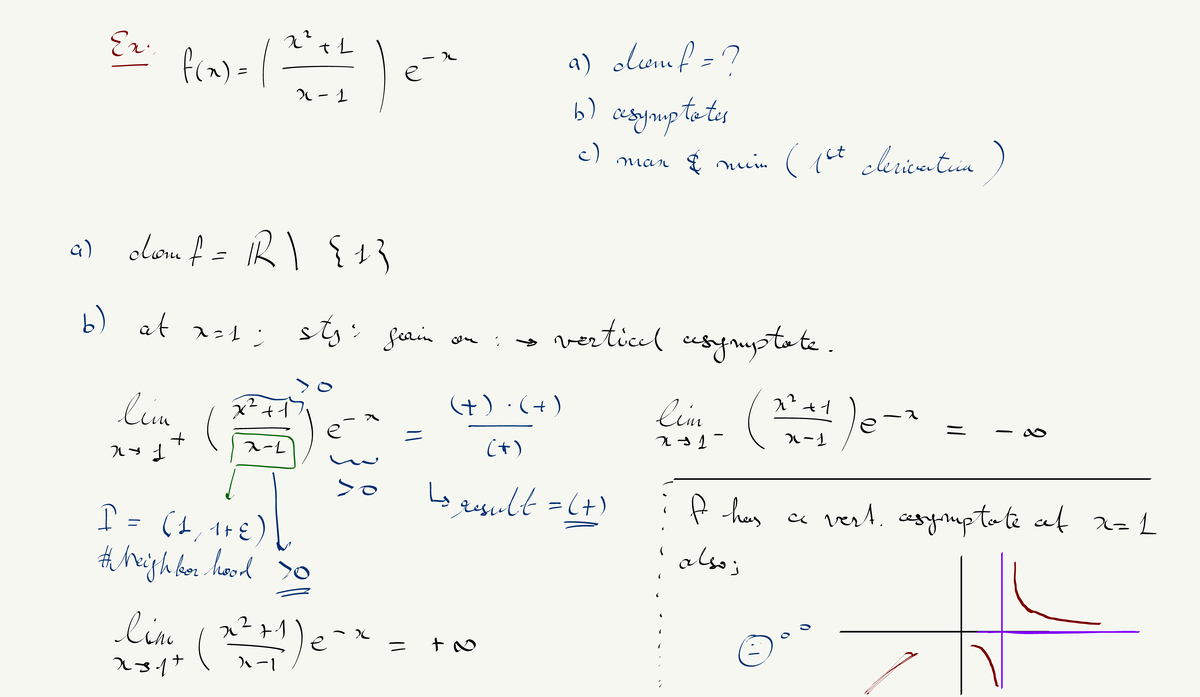 Ex. f(x) = ( x² + 1 / x - 1 ) e^-x
a) dom f = ?
b) asymptotes
c) max & min ( 1st derivative )
a) dom f = ℝ \ {1}
b) at x=1 ; sth: goin on : → vertical asymptote.
lim x→1⁺ ( x² + 1 / x - 1 ) e^-x = (+) · (+) / (+)
> 0
> 0
↳ result = (+)
I = (1, 1+ε)
# Neighborhood > 0
lim x→1⁺ ( x² + 1 / x - 1 ) e^-x = + ∞
lim x→1⁻ ( x² + 1 / x - 1 ) e^-x = - ∞
f has a vert. asymptote at x = 1
also;